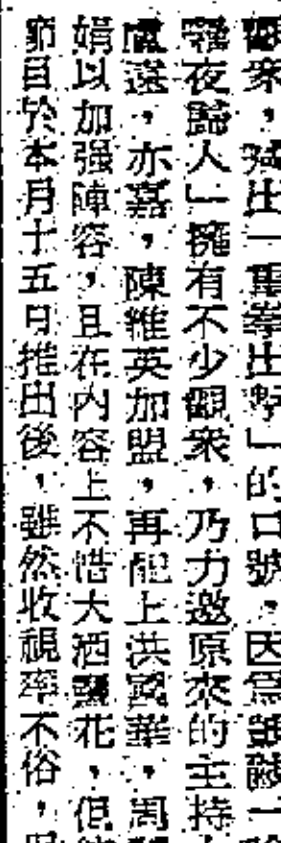 觀衆,喊出一重拳出擊」的口號,因爲鑑
夜歸人」擁有不少觀衆,乃力邀原來的主持
盧遠,亦嘉,陳維英加盟,再配上洪寶華,周
娟以加强陣容,且在内容上不惜大洒鹽花,但
節目於本月十五日推出後,雖然收視率不俗,